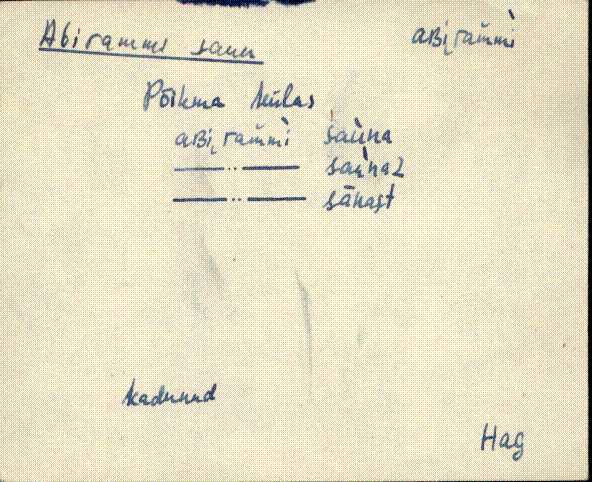 Abirammi saun aʙi̭ram̆mì
Põlma külas
aʙi̭ram̆mì sàuna
—— ·· —— sàunaz
—— ·· —— sānast
kadunud
Hag